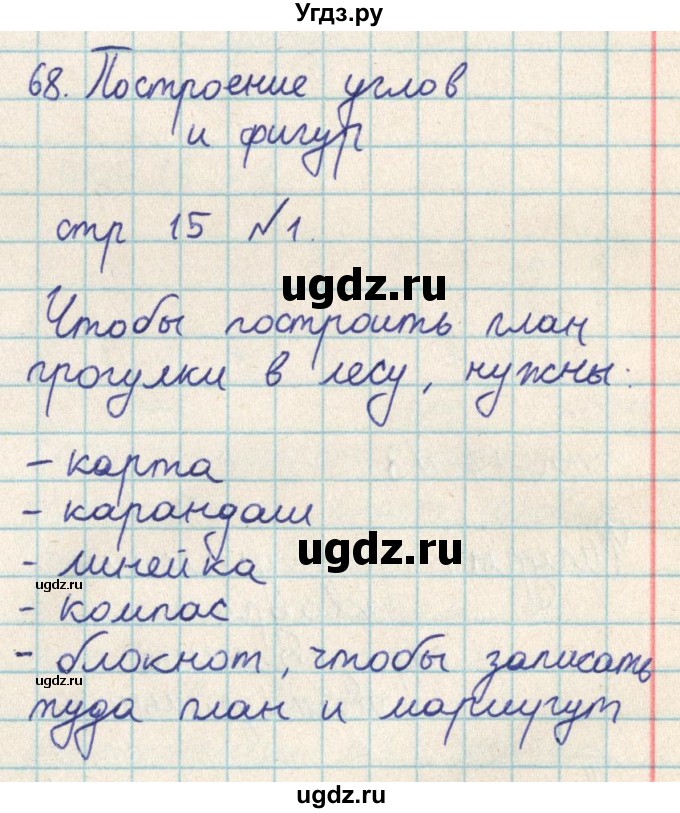 Угдз.ру
68. Построение углов
и фигур
стр 15 №1.
ugdz.ru
Чтобы построить план
прогулки в лесу, нужны:
- карта
- карандаш
ugdz.ru
- линейка
ugdz.ru
- компас
- блокнот, чтобы записать
ugdz.ru
туда план и маршугут
ugdz.ru